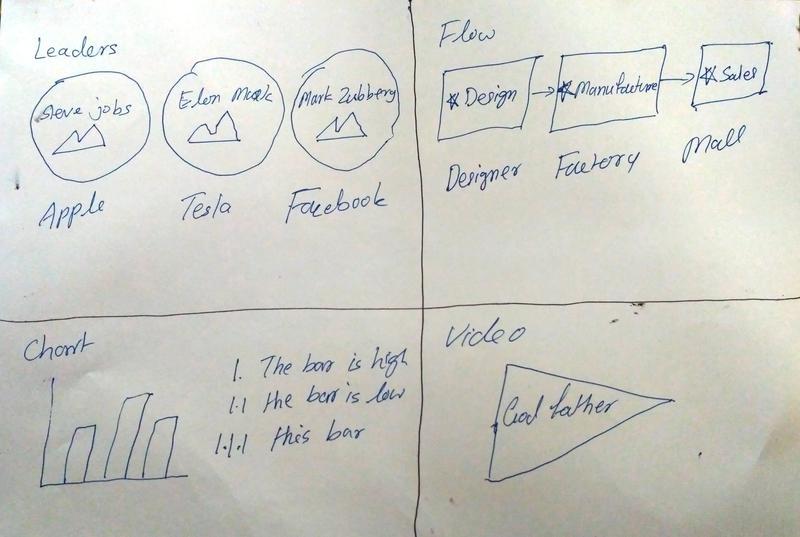 Leaders
Steve jobs
Elon Mask
Mark Zubberg
Apple
Tesla
Facebook
Flow
Design
Manufacture
Sales
Designer
Factory
Mall
Chart
1. The bar is high
1.1 the bar is low
1.1.1 this bar
Video
God father